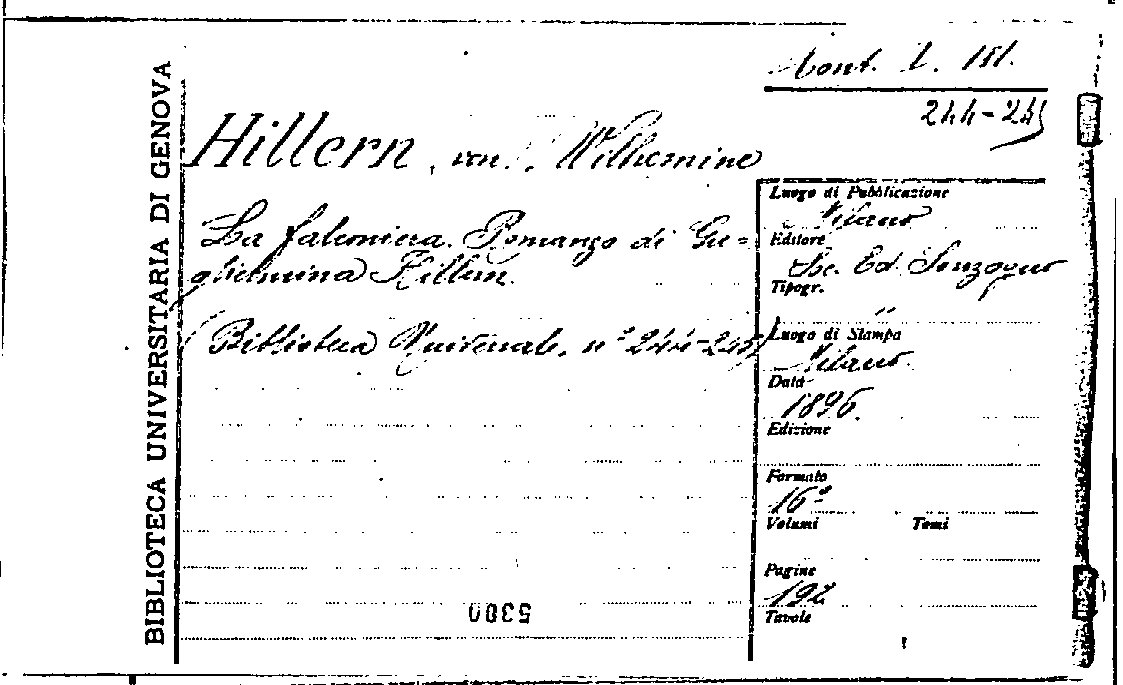 BIBLIOTECA UNIVERSITARIA DI GENOVA
Mont. I. 181.
244-245
Hillern, von, Wilhemine
La falconiera. Romanzo di Gu=
glielmina Hillern.
(Biblioteca Universale, nº 244-245)
Luogo di Pubblicazione
Milano
Editore
Soc. Ed. Sonzogno
Tipogr.
"
Luogo di Stampa
Milano.
Data
1896.
Edizione
Formato
16º
Volumi Tomi
Pagine
192
Tavole
5300